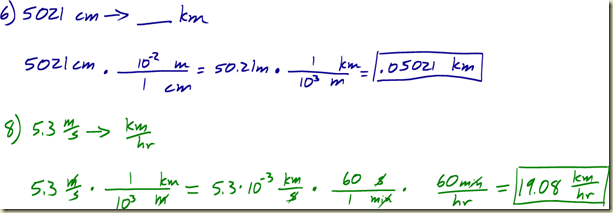 6) 5021 cm → ___ km
5021 cm · 10⁻² m / 1 cm = 50.21 m · 1 km / 10³ m = .05021 km
8) 5.3 m/s → km/hr
5.3 m/s · 1 km / 10³ m = 5.3·10⁻³ km/s · 60 s / 1 min · 60 min / hr = 19.08 km/hr